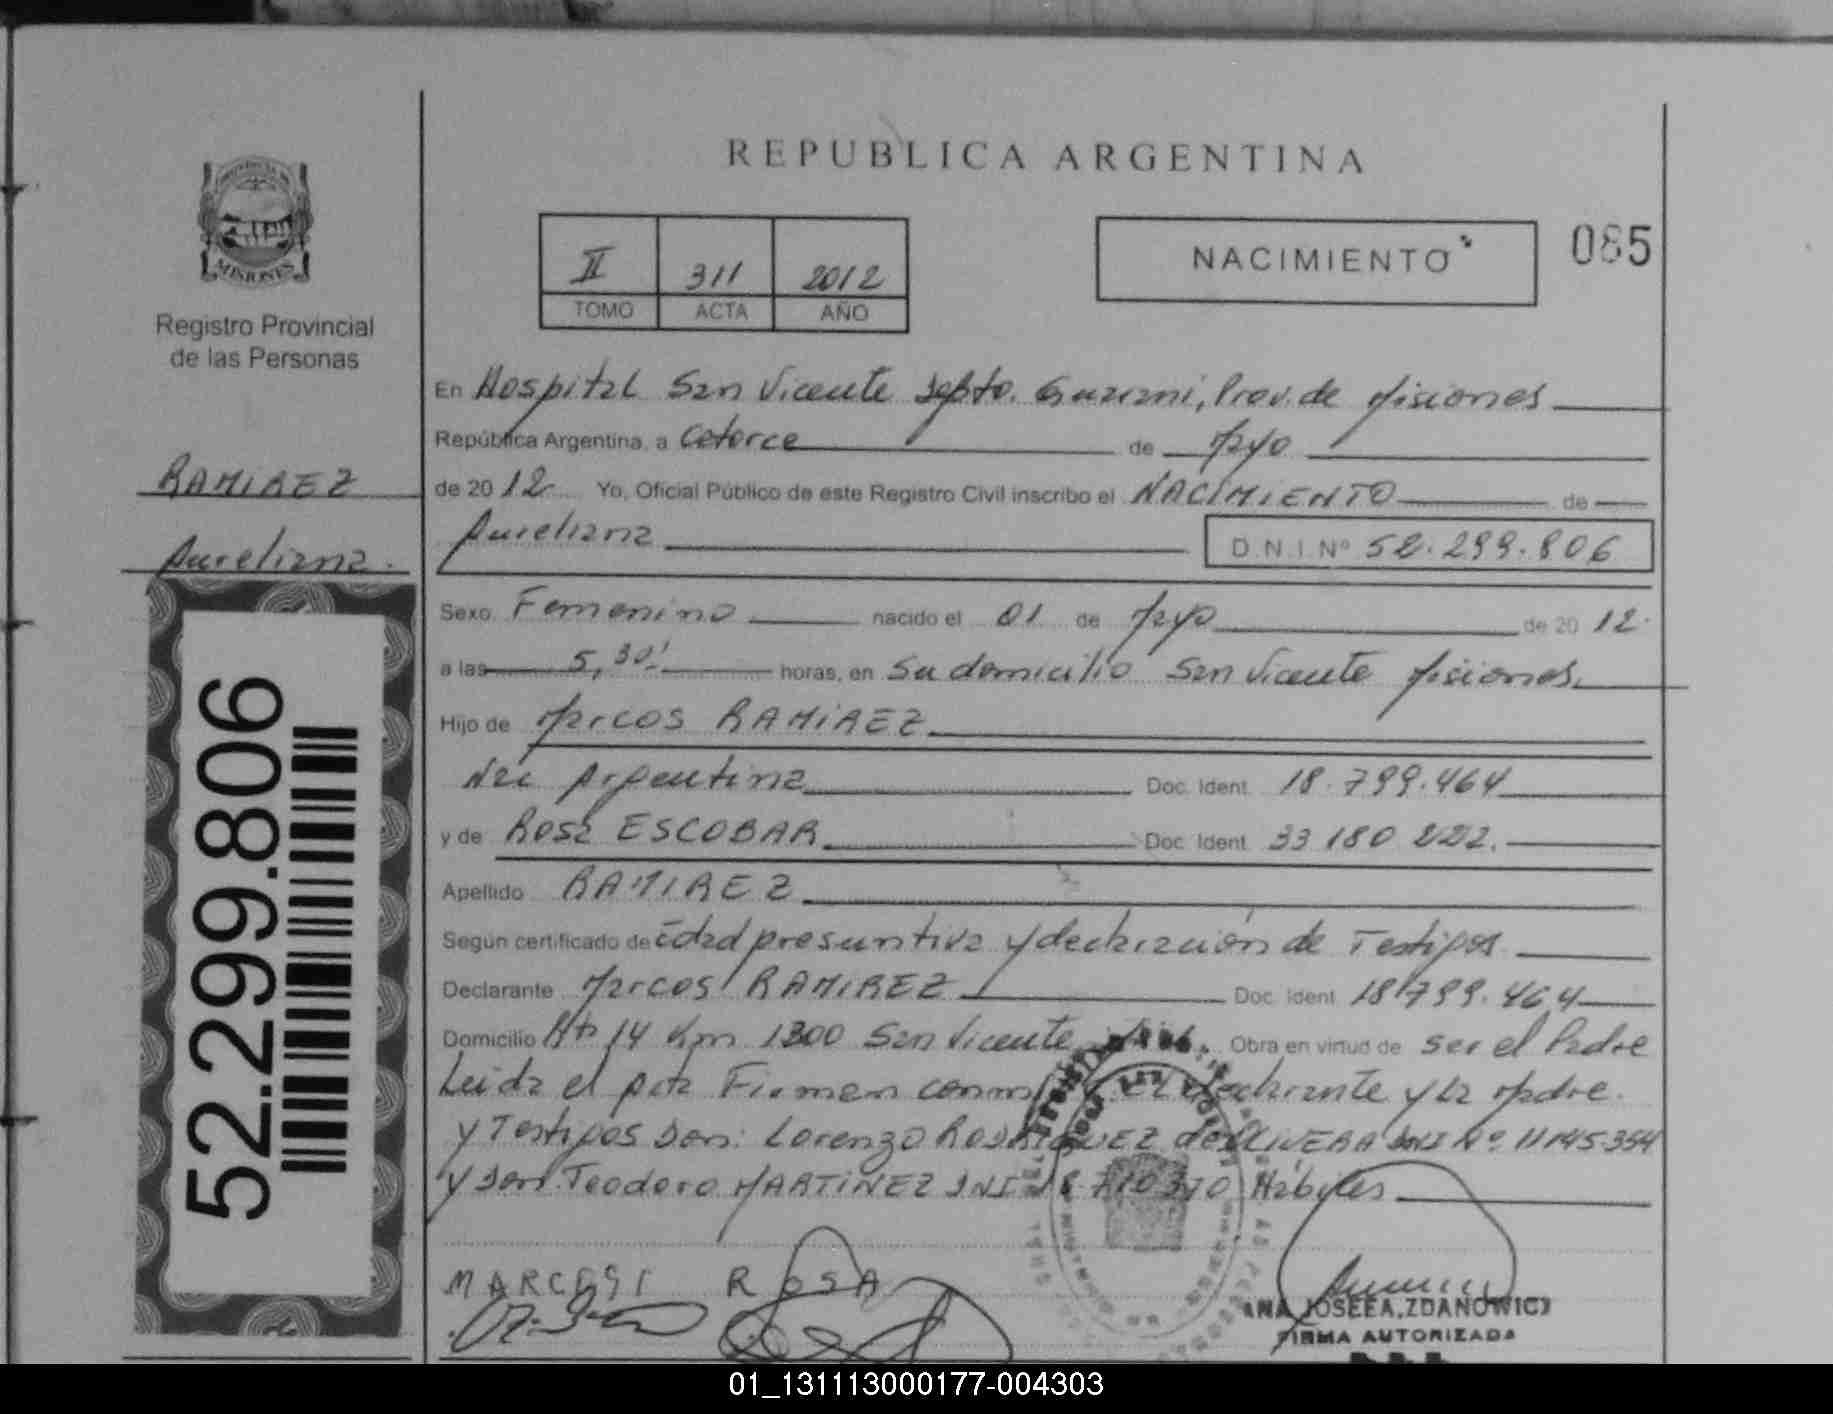 PROVINCIA DE
MISIONES
Registro Provincial
de las Personas
RAMIREZ
Aureliana.
52.299.806
REPUBLICA ARGENTINA
II 311 2012
TOMO ACTA AÑO
NACIMIENTO
085
En Hospital San Vicente Depto. Guarani, Prov. de Misiones
República Argentina, a Catorce de Mayo
de 2012 Yo, Oficial Público de este Registro Civil inscribo el NACIMIENTO de
Aureliana D.N.I. Nº 52.299.806
Sexo Femenino nacido el 01 de Mayo de 2012
a las 5,30' horas, en Su domicilio San Vicente Misiones
Hijo de Marcos RAMIREZ
Nac Argentina Doc. Ident. 18.799.464
y de Rosa ESCOBAR Doc. Ident. 33 180 222.
Apellido RAMIREZ
Según certificado de Edad presuntiva y declaración de Testigos
Declarante Marcos RAMIREZ Doc. Ident. 18.799.464
Domicilio Rta 14 Km 1300 San Vicente Obra en virtud de ser el Padre
Leida el acta Firman conmigo El declarante y la Madre.
y Testigos Don: Lorenzo RODRIGUEZ de OLIVERA DNI Nº 11.145.354
y Don Teodoro MARTINEZ DNI Hábiles
MARCOS ROSA
ANA JOSEFA ZDANOWICZ
FIRMA AUTORIZADA
01_131113000177-004303